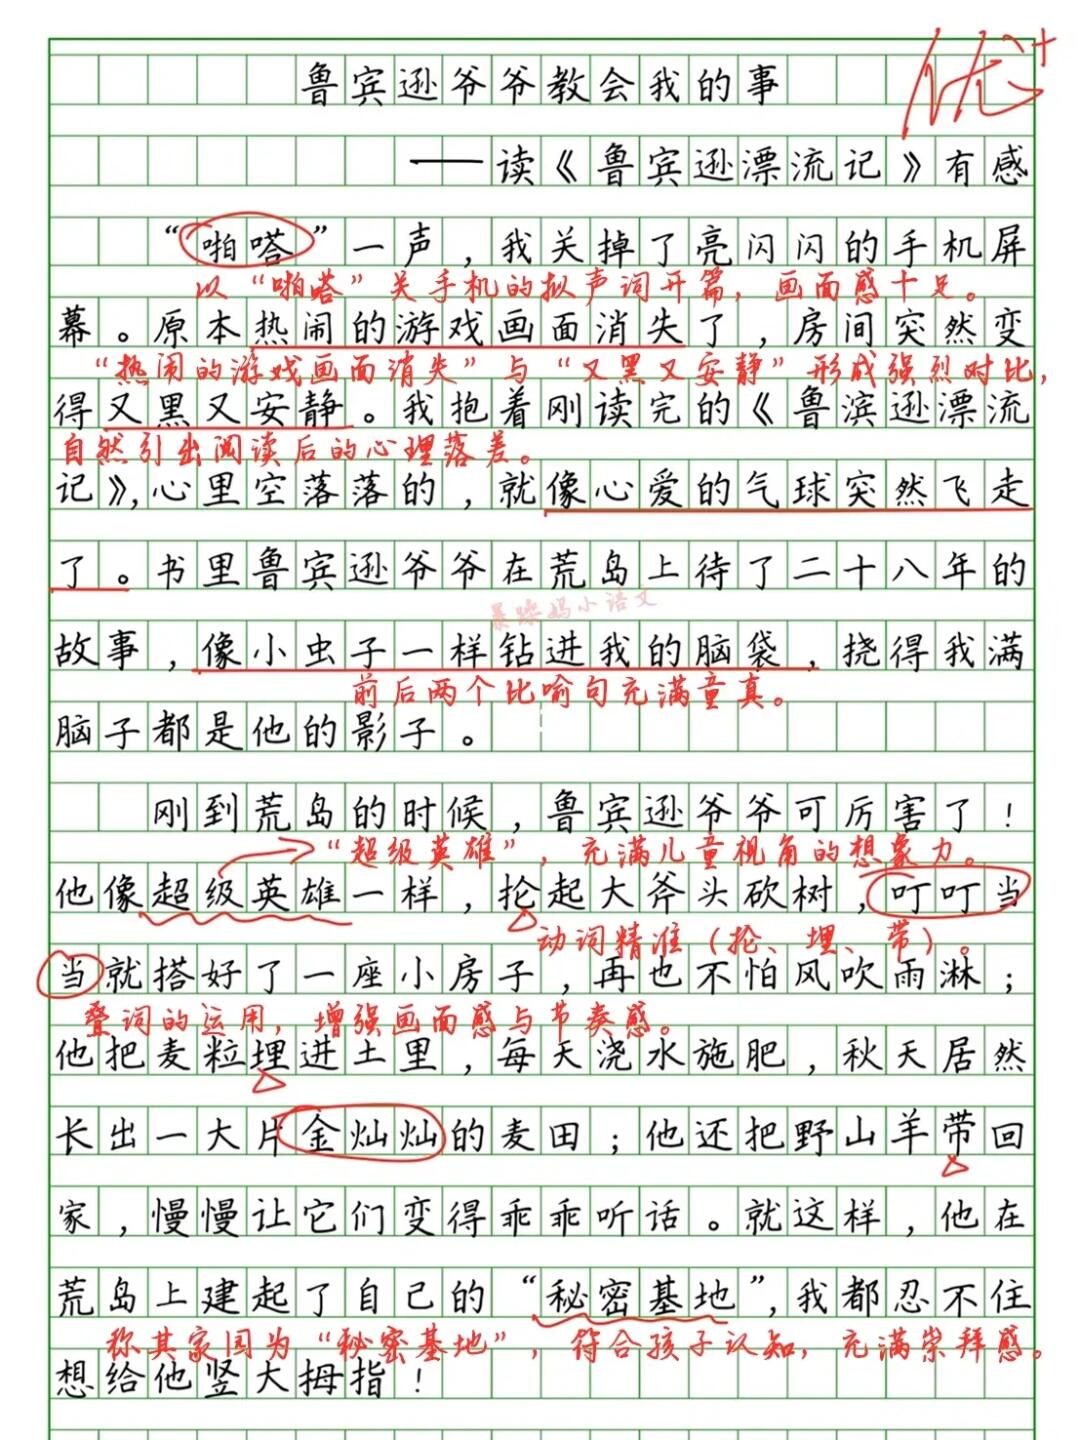 鲁宾逊爷爷教会我的事
优+
——读《鲁宾逊漂流记》有感
“啪嗒”一声，我关掉了亮闪闪的手机屏
以“啪嗒”关手机的拟声词开篇，画面感十足。
幕。原本热闹的游戏画面消失了，房间突然变
“热闹的游戏画面消失”与“又黑又安静”形成强烈对比，
得又黑又安静。我抱着刚读完的《鲁滨逊漂流
自然引出阅读后的心理落差。
记》，心里空落落的，就像心爱的气球突然飞走
了。书里鲁宾逊爷爷在荒岛上待了二十八年的
暴躁妈小语文
故事，像小虫子一样钻进我的脑袋，挠得我满
前后两个比喻句充满童真。
脑子都是他的影子。
刚到荒岛的时候，鲁宾逊爷爷可厉害了！
“超级英雄”，充满儿童视角的想象力。
他像超级英雄一样，抡起大斧头砍树，叮叮当
动词精准（抡、埋、带）。
当就搭好了一座小房子，再也不怕风吹雨淋；
叠词的运用，增强画面感与节奏感。
他把麦粒埋进土里，每天浇水施肥，秋天居然
长出一大片金灿灿的麦田；他还把野山羊带回
家，慢慢让它们变得乖乖听话。就这样，他在
荒岛上建起了自己的“秘密基地”，我都忍不住
称其家园为“秘密基地”，符合孩子认知，充满崇拜感。
想给他竖大拇指！